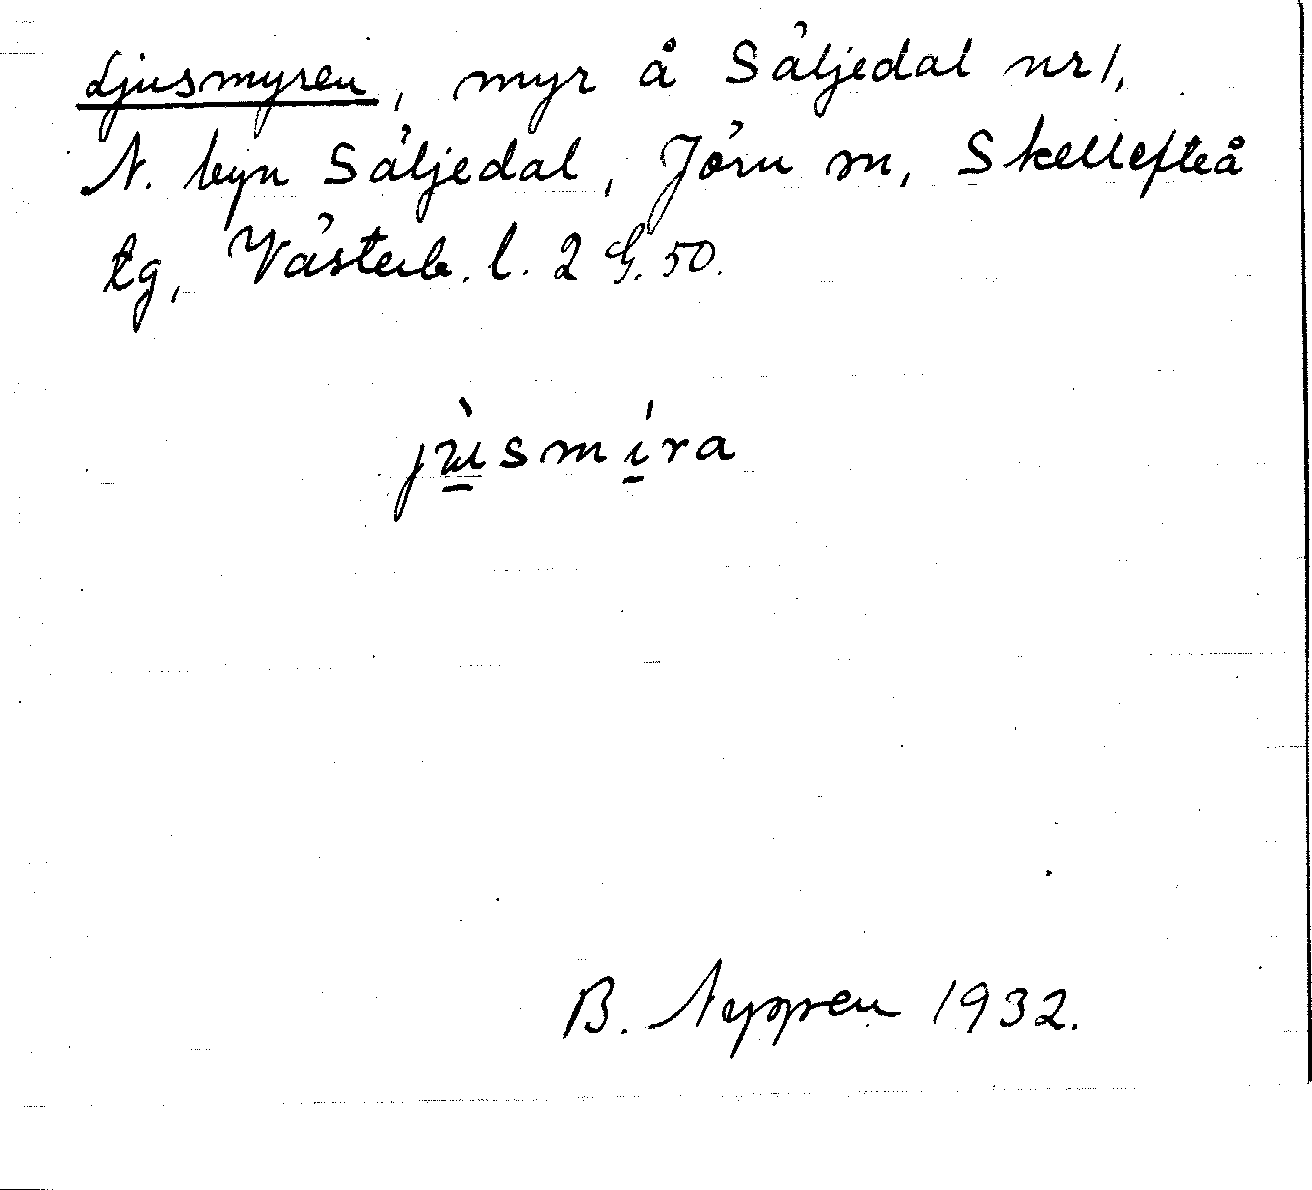 Ljusmyren, myr å Säljedal nr 1,
N. byn Säljedal, Jörn sn, Skellefteå
tg, Västerb. l. 2 G. 50.
jʉ̱̀smí̱ra
B. Nyppen 1932.